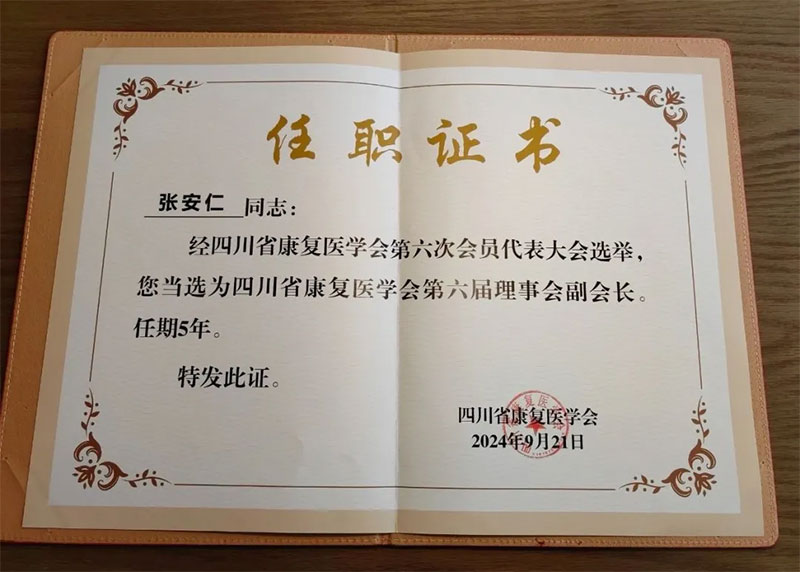 任职证书
张安仁同志：
经四川省康复医学会第六次会员代表大会选举，
您当选为四川省康复医学会第六届理事会副会长。
任期5年。
特发此证。
四川省康复医学会
2024年9月21日